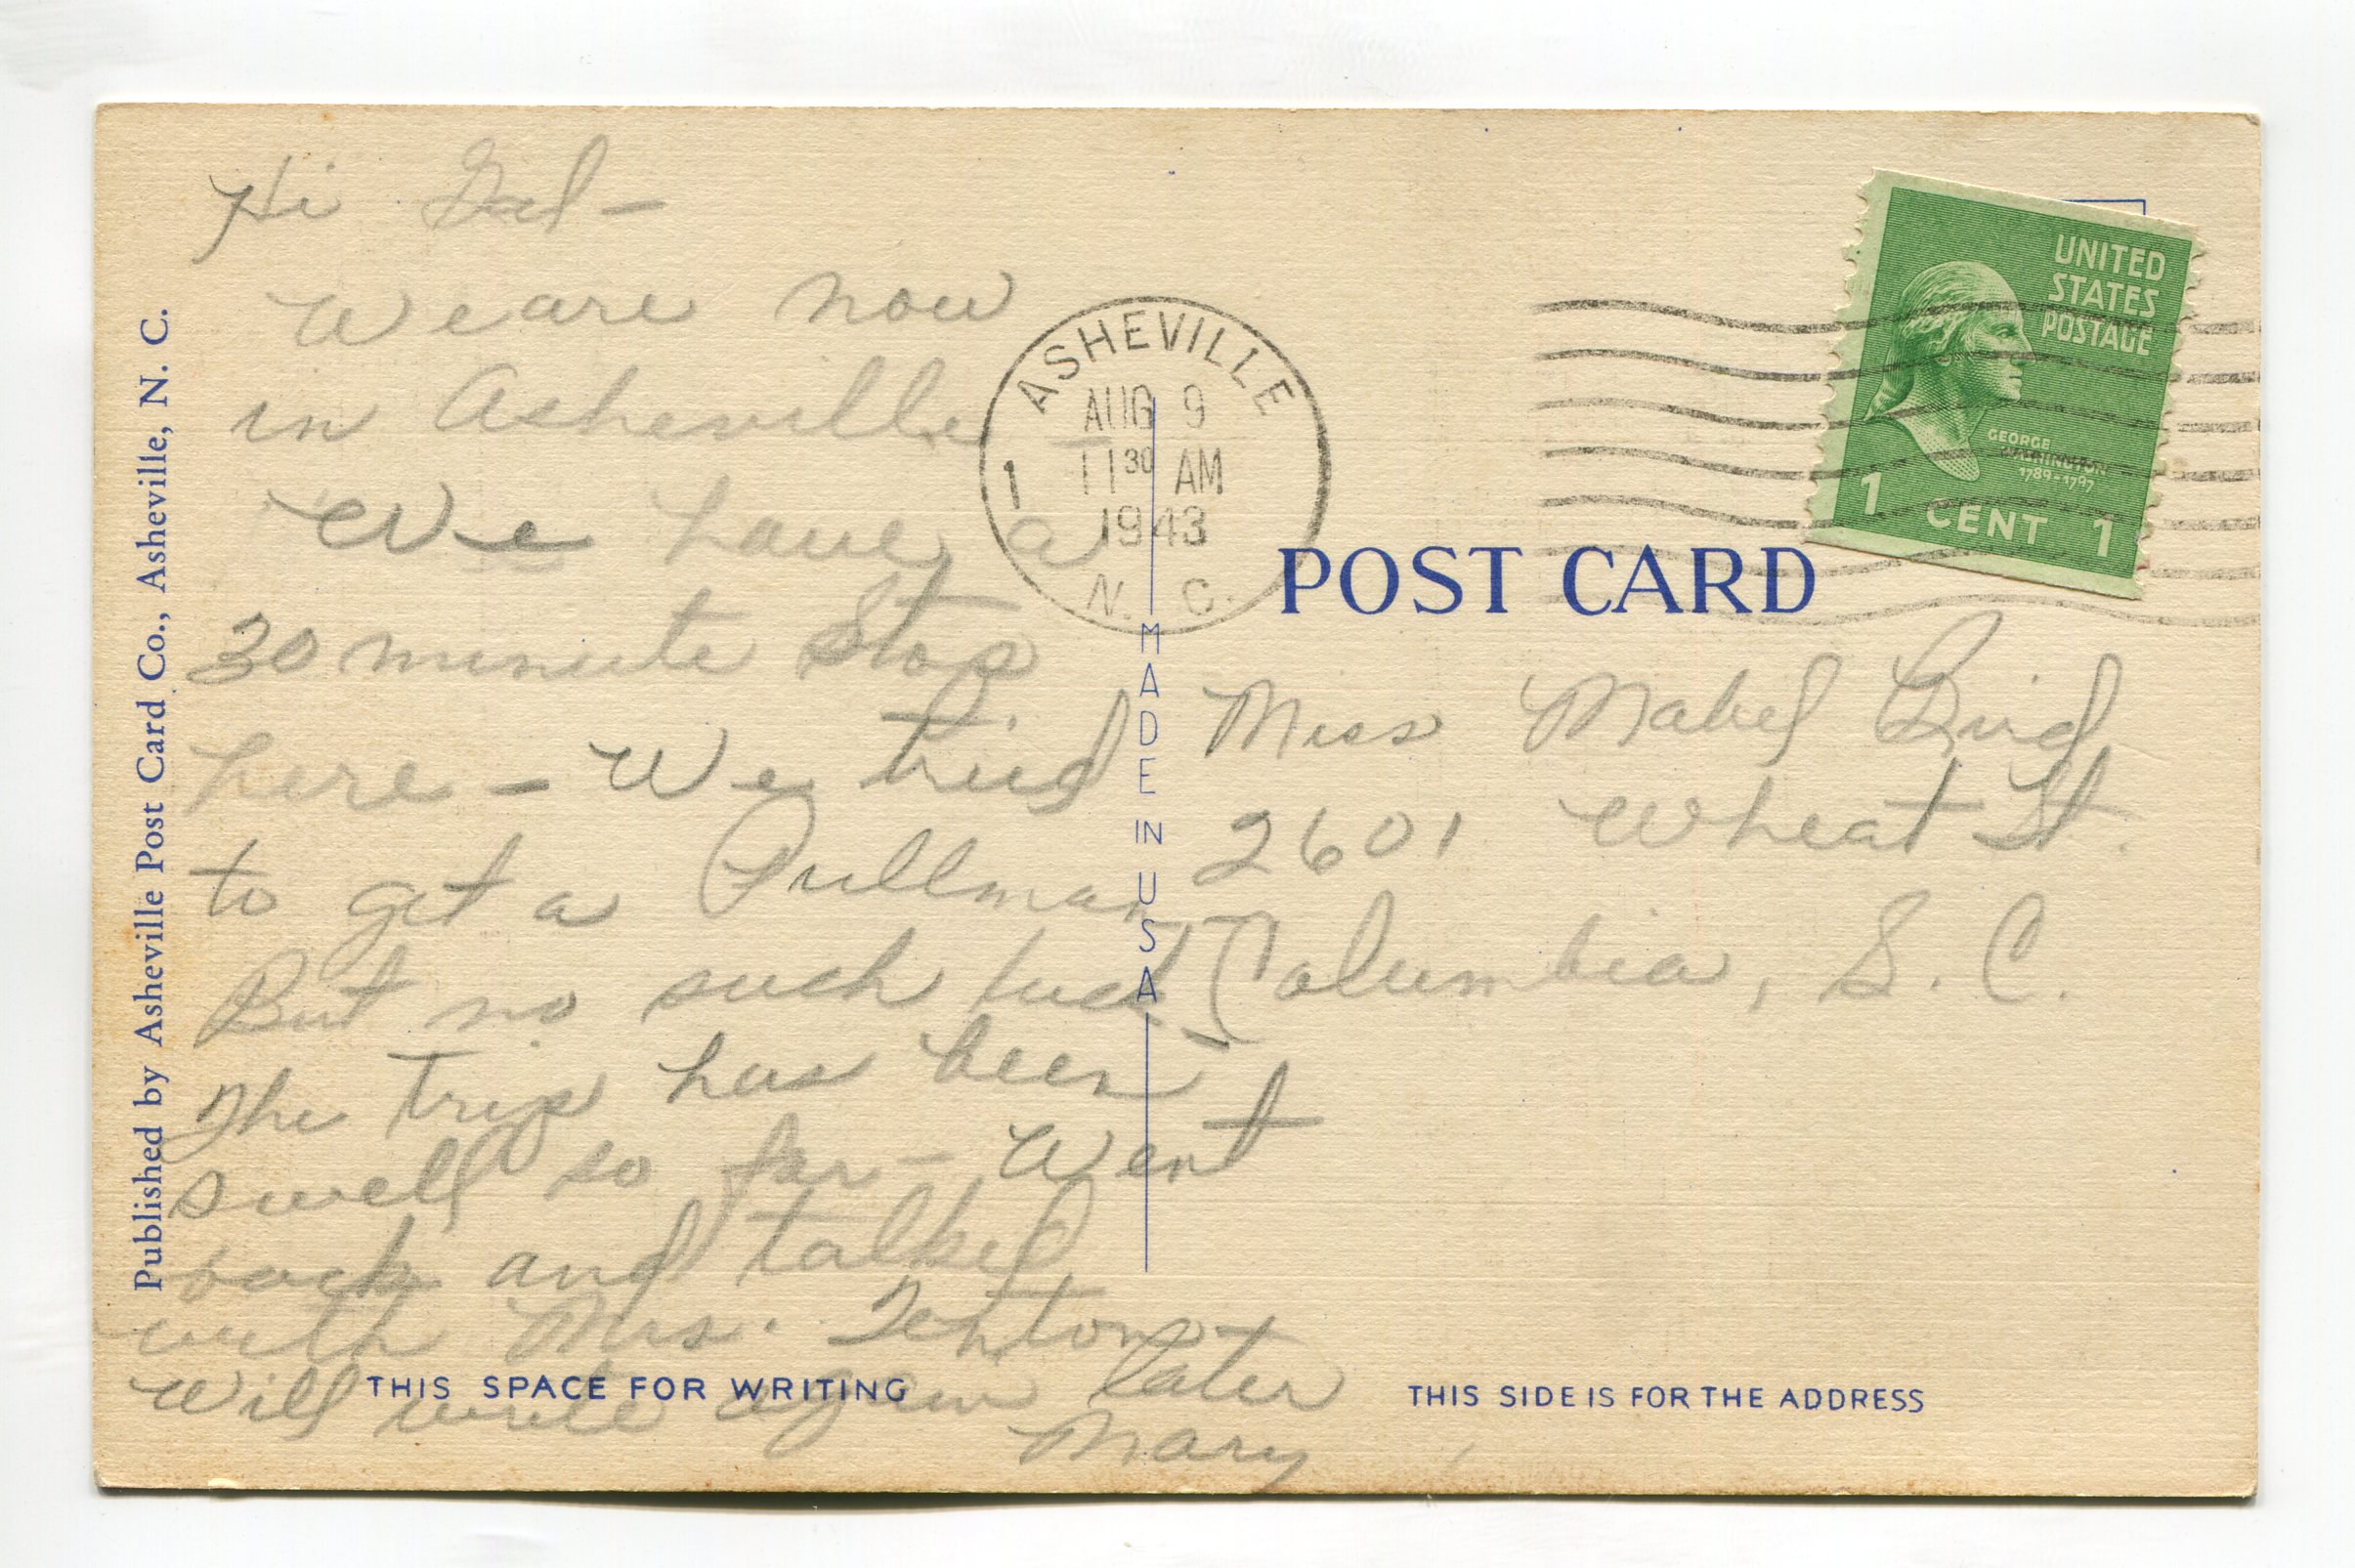 Hi Gal -
We are now
in Asheville -
We have a
30 minute stop
here - We tried
to get a Pullman
But no such luck -
The trip has been
swell so far - Went
back and talked
with Mrs. Fenton -
Will write again later
Mary
Published by Asheville Post Card Co., Asheville, N. C.
THIS SPACE FOR WRITING
ASHEVILLE
AUG 9
1 11 30 AM
1943
N. C.
MADE IN U S A
UNITED
STATES
POSTAGE
GEORGE
WASHINGTON
1789-1797
1 CENT 1
POST CARD
Miss Mabel Bird
2601 Wheat St.
Columbia, S. C.
THIS SIDE IS FOR THE ADDRESS